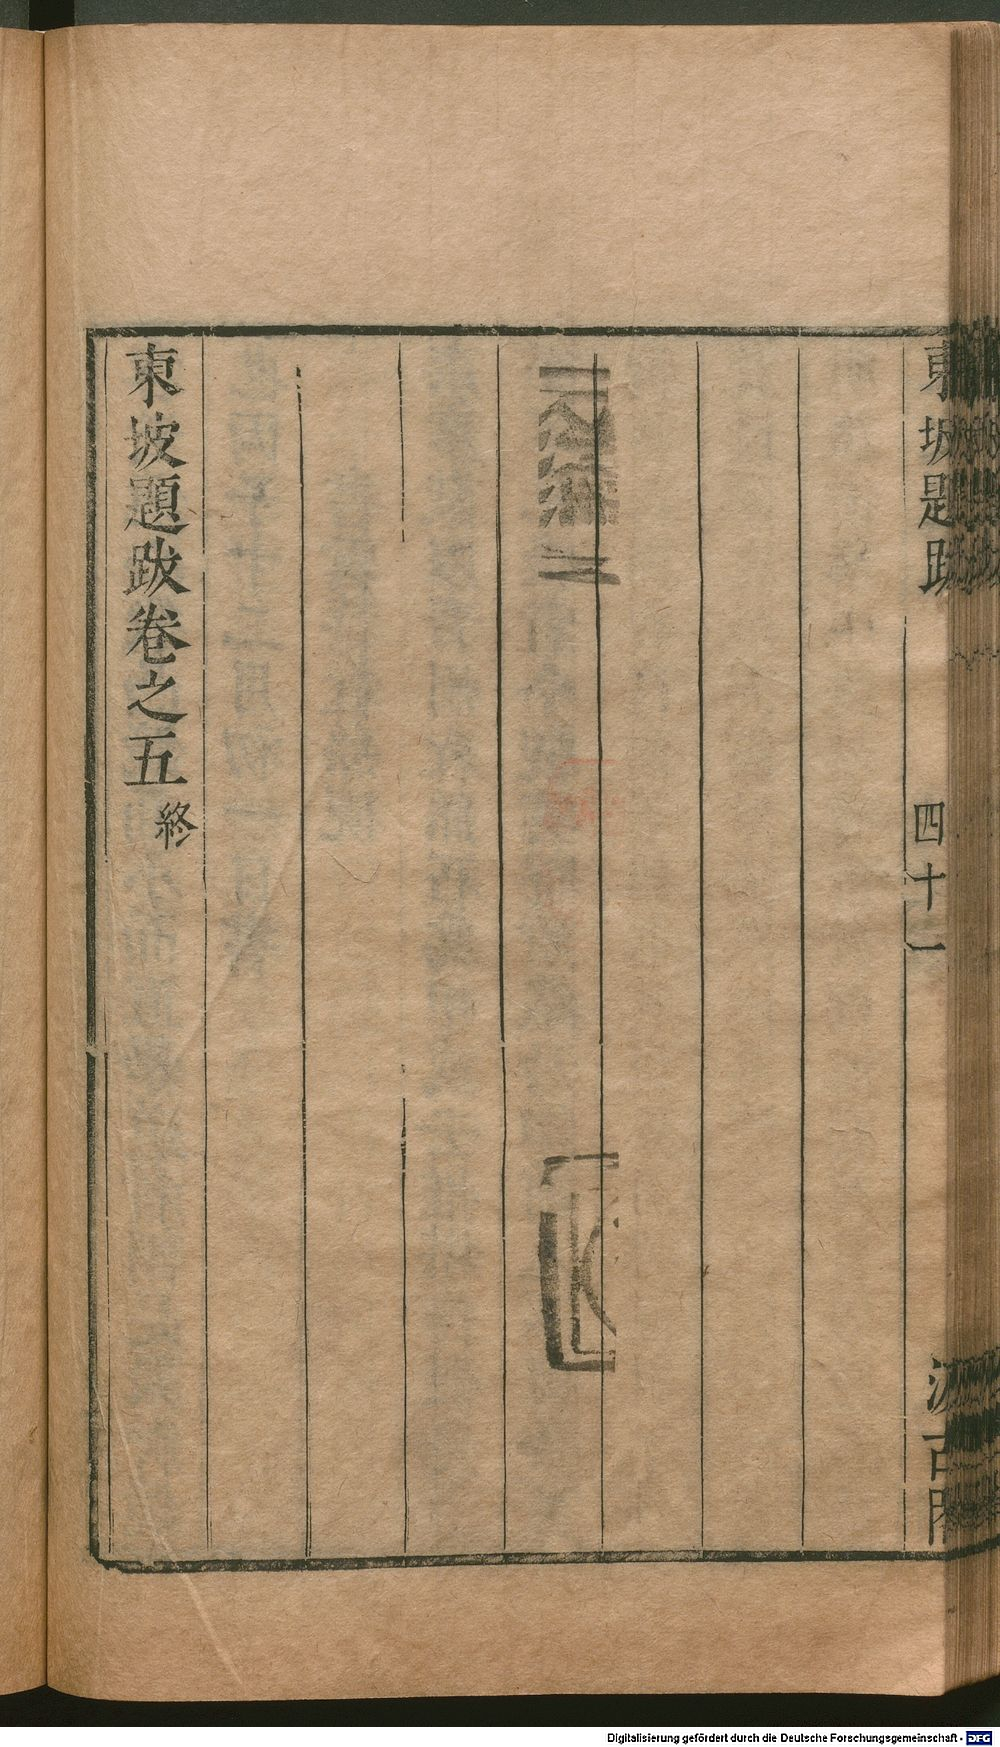 東坡題跋
四十一
汲古閣
東坡題跋卷之五終
Digitalisierung gefördert durch die Deutsche Forschungsgemeinschaft - DFG